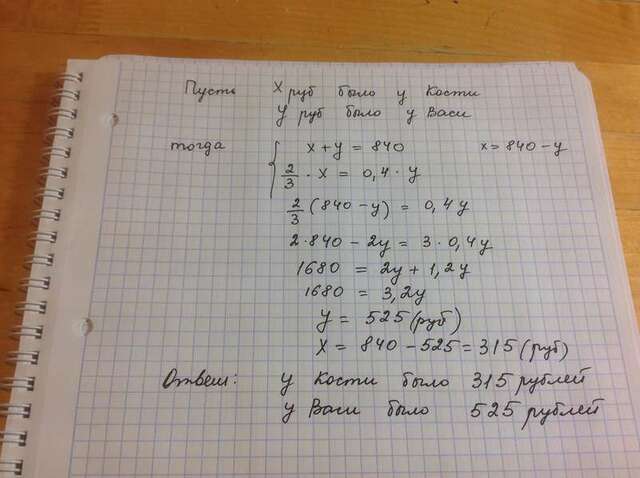 Пусть X руб было у Кости
У руб было у Васи
тогда { x + y = 840 x = 840 - y
2/3 · x = 0,4 · y
2/3 (840 - y) = 0,4 y
2·840 - 2y = 3·0,4y
1680 = 2y + 1,2y
1680 = 3,2y
y = 525 (руб)
x = 840 - 525 = 315 (руб)
Ответ: у Кости было 315 рублей
у Васи было 525 рублей